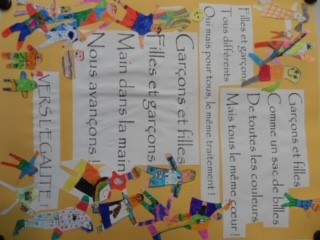 Garçons et filles
Comme un sac de billes
De toutes les couleurs
Mais tous le même cœur !
Filles et garçons
Tous différents
Oui mais pour tous le même traitement !
Garçons et filles
Filles et garçons
Main dans la main
Nous avançons !
VERS L'EGALITE